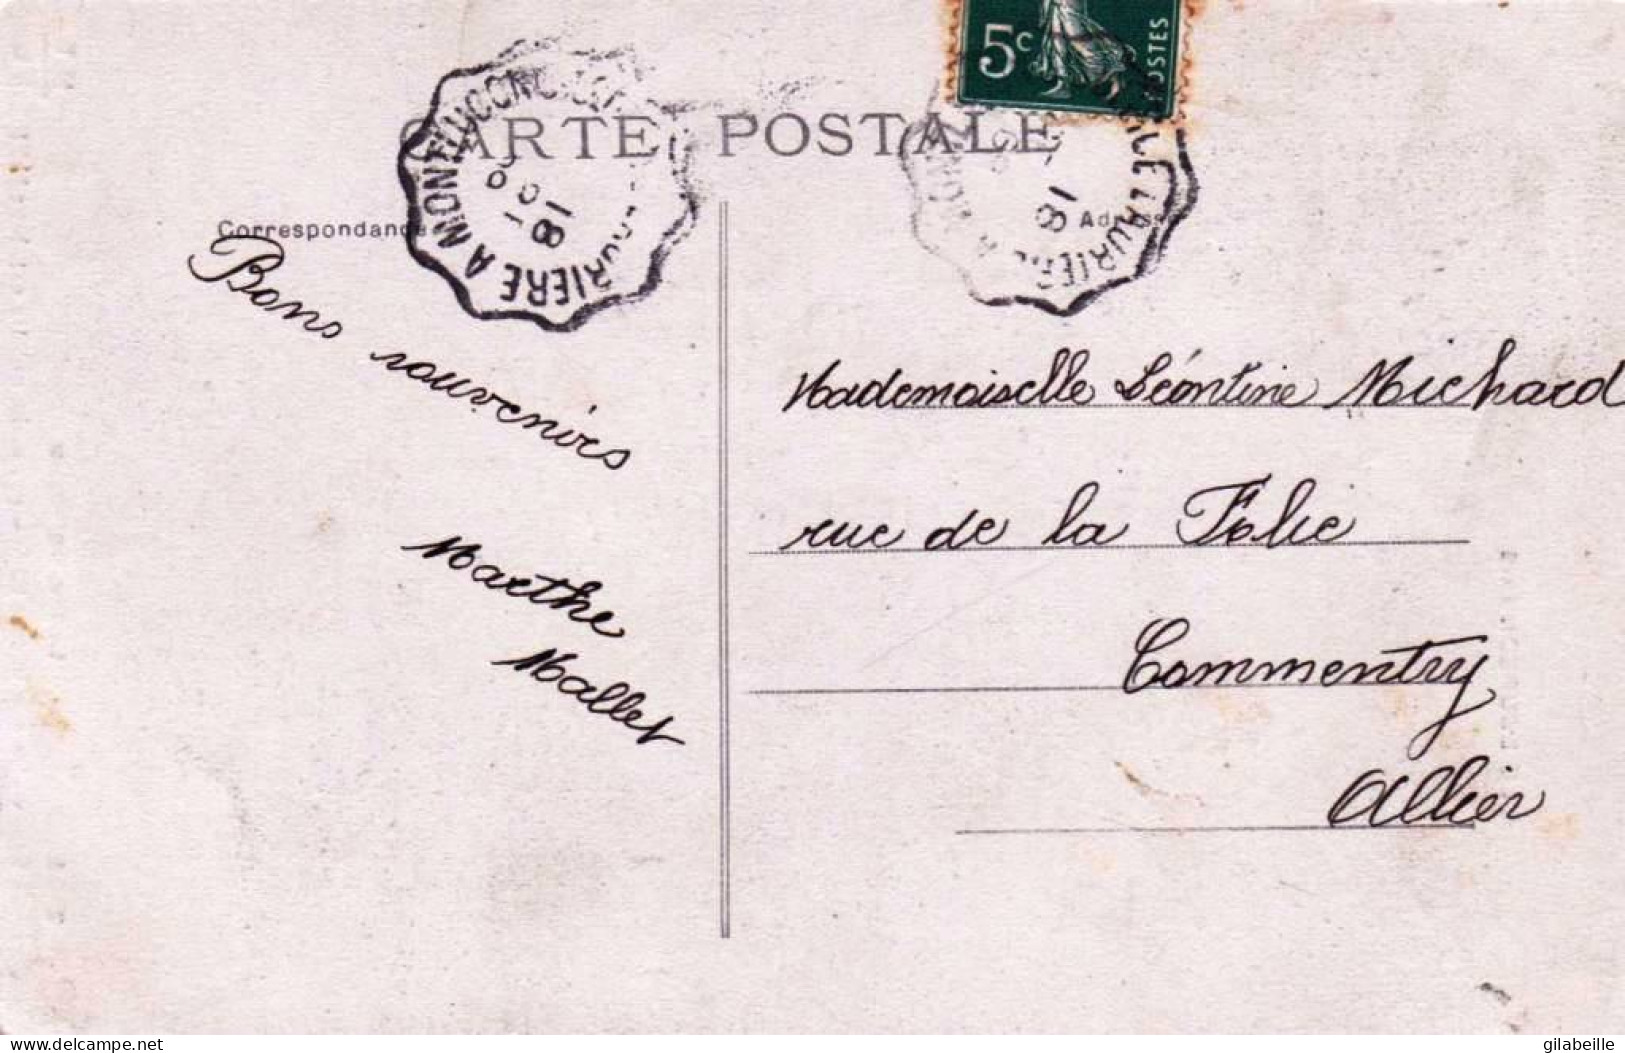 5c
POSTES
CARTE POSTALE
Correspondance
Adresse
RIERE A MONTLUCON
18
LAURIERE
18
Bons souvenirs
Marthe
Mallet
Mademoiselle Léontine Michard
rue de la Folie
Commentry
Allier
delcampe.net
gilabeille